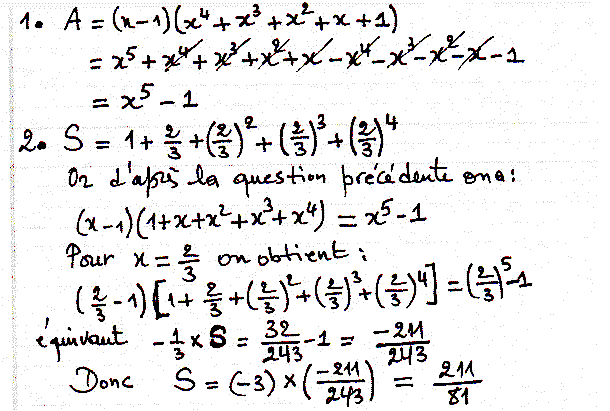 1. A = (x-1)(x⁴+x³+x²+x+1)
= x⁵+x⁴+x³+x²+x-x⁴-x³-x²-x-1
= x⁵-1
2. S = 1+2/3+(2/3)²+(2/3)³+(2/3)⁴
Or d'après la question précédente on a:
(x-1)(1+x+x²+x³+x⁴) = x⁵-1
Pour x = 2/3 on obtient:
(2/3-1)[1+2/3+(2/3)²+(2/3)³+(2/3)⁴] = (2/3)⁵-1
équivaut -1/3 × S = 32/243 -1 = -211/243
Donc S = (-3)×(-211/243) = 211/81